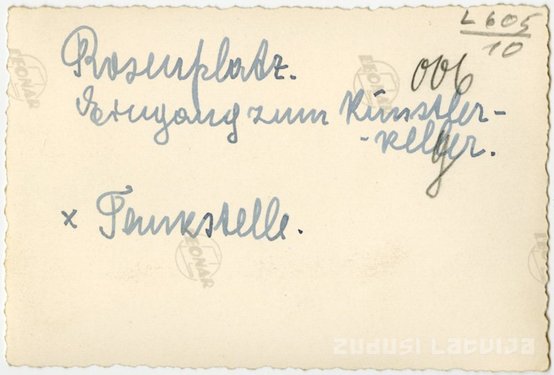 L 605
10
Rosenplatz.
006
Eingang zum Künstler-
-keller.
g
x Tankstelle.
LEONAR
LEONAR
LEONAR
LEONAR
zudusi Latvija